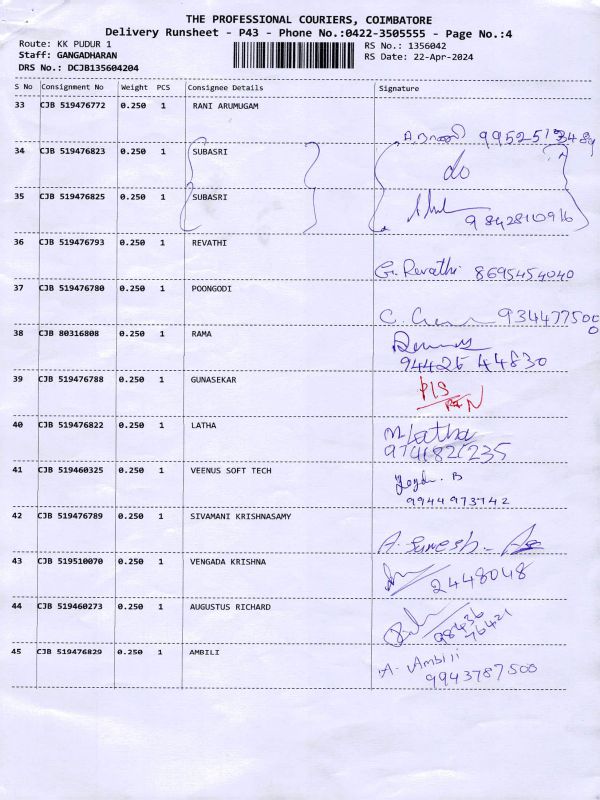 THE PROFESSIONAL COURIERS, COIMBATORE
Delivery Runsheet - P43 - Phone No.:0422-3505555 - Page No.:4
Route: KK PUDUR 1 RS No.: 1356042
Staff: GANGADHARAN RS Date: 22-Apr-2024
DRS No.: DCJB135604204
S No Consignment No Weight PCS Consignee Details Signature
33 CJB 519476772 0.250 1 RANI ARUMUGAM
34 CJB 519476823 0.250 1 SUBASRI
do
35 CJB 519476825 0.250 1 SUBASRI
9842810916
36 CJB 519476793 0.250 1 REVATHI
G. Revathi 8695454040
37 CJB 519476780 0.250 1 POONGODI
C. 9344775000
38 CJB 80316808 0.250 1 RAMA
94426 44830
39 CJB 519476788 0.250 1 GUNASEKAR
40 CJB 519476822 0.250 1 LATHA
M. Latha
9741821235
41 CJB 519460325 0.250 1 VEENUS SOFT TECH
9944973742
42 CJB 519476789 0.250 1 SIVAMANI KRISHNASAMY
A. Suresh
43 CJB 519510070 0.250 1 VENGADA KRISHNA
2448048
44 CJB 519460273 0.250 1 AUGUSTUS RICHARD
98436
76421
45 CJB 519476829 0.250 1 AMBILI
A- Ambili
9943787500